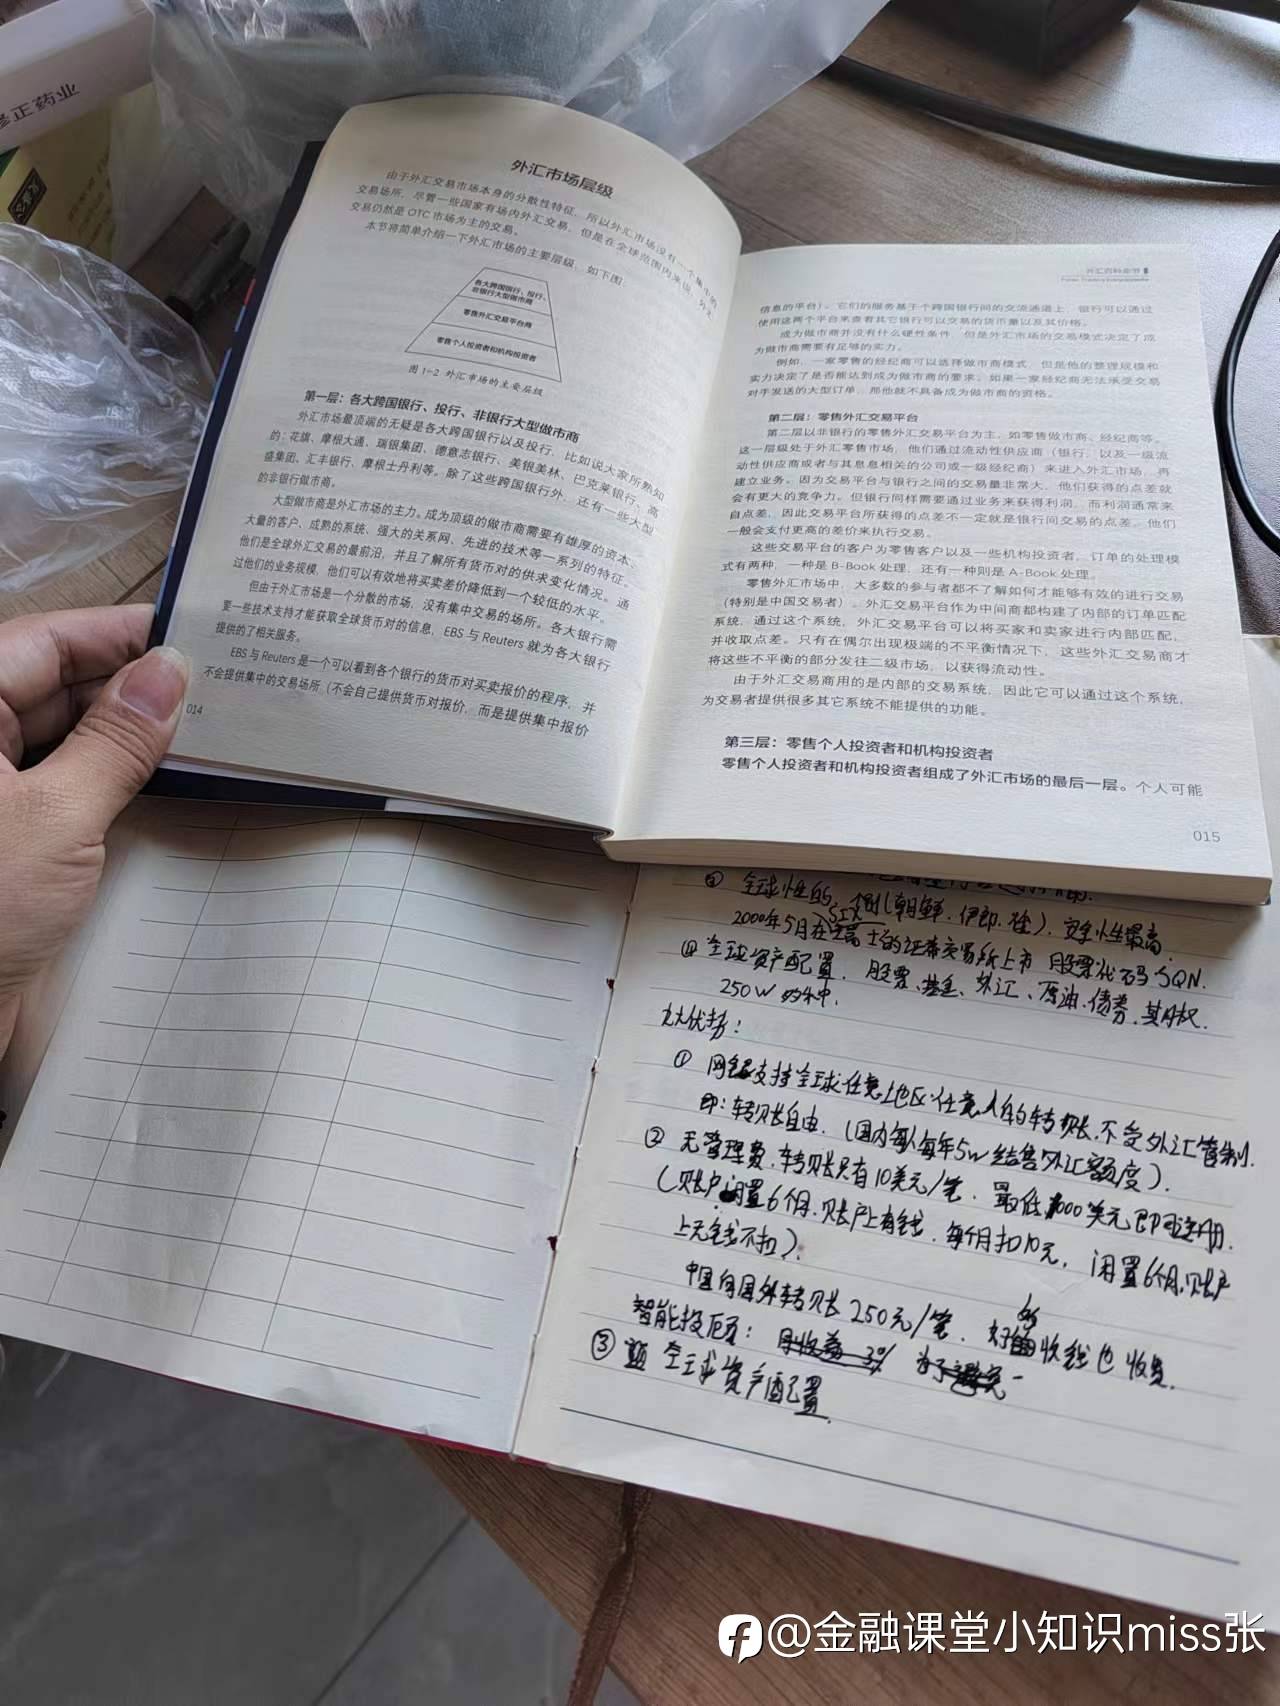 修正药业
外汇市场层级
由于外汇交易市场本身的分散性特征，所以外汇市场没有一个集中的
交易场所，尽管一些国家有场内外汇交易，但是在全球范围内来说，外汇
交易仍然是OTC市场为主的交易。
本节将简单介绍一下外汇市场的主要层级，如下图：
各大跨国银行、投行、
非银行大型做市商
零售外汇交易平台商
零售个人投资者和机构投资者
图1-2 外汇市场的主要层级
第一层：各大跨国银行、投行、非银行大型做市商
外汇市场最顶端的无疑是各大跨国银行以及投行，比如说大家所熟知
的：花旗、摩根大通、瑞银集团、德意志银行、美银美林、巴克莱银行、高
盛集团、汇丰银行、摩根士丹利等。除了这些跨国银行外，还有一些大型
的非银行做市商。
大型做市商是外汇市场的主力。成为顶级的做市商需要有雄厚的资本、
大量的客户、成熟的系统、强大的关系网、先进的技术等一系列的特征。
他们是全球外汇交易的最前沿，并且了解所有货币对的供求变化情况。通
过他们的业务规模，他们可以有效地将买卖差价降低到一个较低的水平。
但由于外汇市场是一个分散的市场，没有集中交易的场所。各大银行需
要一些技术支持才能获取全球货币对的信息，EBS与Reuters就为各大银行
提供的了相关服务。
EBS与Reuters是一个可以看到各个银行的货币对买卖报价的程序，并
不会提供集中的交易场所（不会自己提供货币对报价，而是提供集中报价
014
外汇百科全书
信息的平台）。它们的服务基于个跨国银行间的交流通道上，银行可以通过
使用这两个平台来查看其它银行可以交易的货币量以及其价格。
成为做市商并没有什么硬性条件，但是外汇市场的交易模式决定了成
为做市商需要有足够的实力。
例如，一家零售的经纪商可以选择做市商模式，但是他的整理规模和
实力决定了是否能达到成为做市商的要求。如果一家经纪商无法承受交易
对手发送的大型订单，那他就不具备成为做市商的资格。
第二层：零售外汇交易平台
第二层以非银行的零售外汇交易平台为主，如零售做市商、经纪商等。
这一层级处于外汇零售市场，他们通过流动性供应商（银行，以及一级流
动性供应商或者与其息息相关的公司或一级经纪商）来进入外汇市场，再
建立业务。因为交易平台与银行之间的交易量非常大，他们获得的点差就
会有更大的竞争力。但银行同样需要通过业务来获得利润，而利润通常来
自点差，因此交易平台所获得的点差不一定就是银行间交易的点差，他们
一般会支付更高的差价来执行交易。
这些交易平台的客户为零售客户以及一些机构投资者，订单的处理模
式有两种，一种是B-Book处理，还有一种则是A-Book处理。
零售外汇市场中，大多数的参与者都不了解如何才能够有效的进行交易
（特别是中国交易者）。外汇交易平台作为中间商都构建了内部的订单匹配
系统，通过这个系统，外汇交易平台可以将买家和卖家进行内部匹配，
并收取点差。只有在偶尔出现极端的不平衡情况下，这些外汇交易商才
将这些不平衡的部分发往二级市场，以获得流动性。
由于外汇交易商用的是内部的交易系统，因此它可以通过这个系统，
为交易者提供很多其它系统不能提供的功能。
第三层：零售个人投资者和机构投资者
零售个人投资者和机构投资者组成了外汇市场的最后一层。个人可能
015
全球性的，（朝鲜、伊朗、除），安全性最高。
2000年5月在瑞士的证券交易所上市 股票代码SQN.
④ 全球资产配置. 股票、基金、外汇、原油、债券、期权.
250W
九大优势：
① 网银支持全球任意地区任意人的转账，不受外汇管制.
即：转账自由.（国内每人每年5w结售外汇额度）.
② 无管理费，转账只有10美元/笔，最低1000美元即可注册.
（账户闲置6个月，账户上有钱，每个月扣10元，闲置6个月，账户
上无钱不扣）.
中国向国外转账250元/笔，对方收钱也收费.
智能投顾：
③ 全球资产配置
@金融课堂小知识miss张